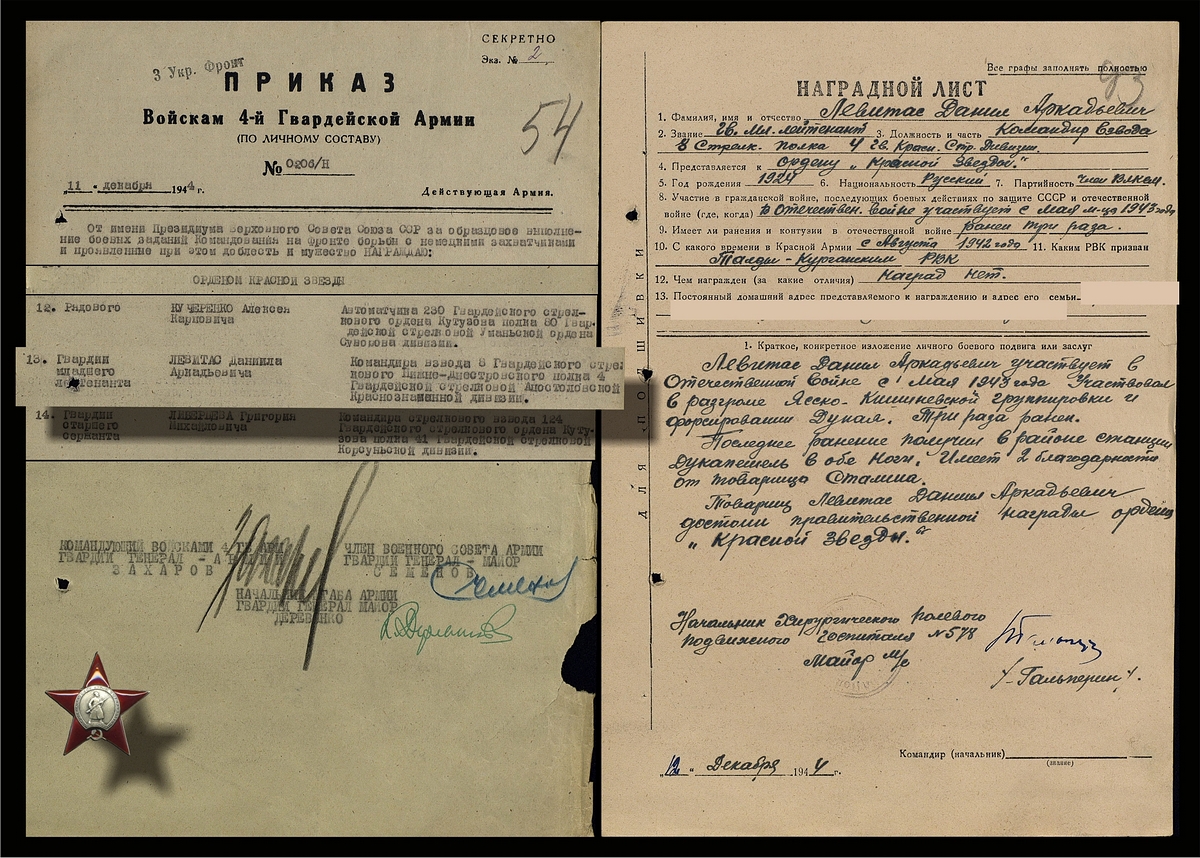 СЕКРЕТНО
Экз. № 2
3 Укр. Фронт
ПРИКАЗ
Войскам 4-й Гвардейской Армии
(ПО ЛИЧНОМУ СОСТАВУ)
54
№ 0206/Н
„11 " декабря 1944 г.
Действующая Армия.
От имени Президиума Верховного Совета Союза ССР за образцовое выполне-
ние боевых заданий Командования на фронте борьбы с немецкими захватчиками
и проявленные при этом доблесть и мужество НАГРАЖДАЮ:
ОРДЕНОМ КРАСНОЙ ЗВЕЗДЫ
12. Рядового КУЧЕРЕНКО Алексея Автоматчика 230 Гвардейского стрел-
Карповича кового ордена Кутузова полка 80 Гвар-
дейской стрелковой Уманьской ордена
Суворова дивизии.
13. Гвардии ЛЕВИТАС Даниила Командира взвода 8 Гвардейского стрел
младшего Аркадьевича кового полка 4
лейтенанта Гвардейской стрелковой Апостоловской
Краснознаменной дивизии.
14. Гвардии Григория Командира стрелкового взвода 124
старшего Михайловича Гвардейского стрелкового ордена Куту-
сержанта зова полка 41 Гвардейской стрелковой
Корсуньской дивизии.
КОМАНДУЮЩИЙ ВОЙСКАМИ 4 ГВ АРМ ЧЛЕН ВОЕННОГО СОВЕТА АРМИИ
ГВАРДИИ ГЕНЕРАЛ - ГВАРДИИ ГЕНЕРАЛ - МАЙОР
ЗАХАРОВ СЕМЕНОВ
НАЧАЛЬНИК ШТАБА АРМИИ
ГВАРДИИ ГЕНЕРАЛ МАЙОР
ДЕРЕВЯНКО
Все графы заполнять полностью
НАГРАДНОЙ ЛИСТ
1. Фамилия, имя и отчество Левитас Данил Аркадьевич
2. Звание Гв. Мл. лейтенант 3. Должность и часть Командир взвода
8 Стрелк. полка 4 Гв. Красн. Стр. Дивизии.
4. Представляется к ордену „Красной Звезды."
5. Год рождения 1924 6. Национальность Русский 7. Партийность член Влксм.
8. Участие в гражданской войне, последующих боевых действиях по защите СССР и отечественной
войне (где, когда) в Отечествен. войне участвует с Мая м-ца 1943 года
9. Имеет ли ранения и контузии в отечественной войне ранен три раза.
10. С какого времени в Красной Армии с Августа 1942 года 11. Каким РВК призван
Талды-Курганским РВК
12. Чем награжден (за какие отличия) Наград нет.
13. Постоянный домашний адрес представляемого к награждению и адрес его семьи
ДЛЯ ПОДШИВКИ
1. Краткое, конкретное изложение личного боевого подвига или заслуг
Левитас Данил Аркадьевич участвует в
Отечественной войне с Мая 1943 года Участвовал
в разгроме Ясско-Кишиневской группировки и
форсировании Дуная. Три раза ранен.
Последнее ранение получил в районе станции
Дукапешель в обе Ноги. Имеет 2 благодарности
от товарища Сталина.
Товарищ Левитас Данил Аркадьевич
достоин правительственной награды ордена
„Красной Звезды."
Начальник Хирургического полевого
подвижного Госпиталя № 578
Майор м/с
/-Гальперин/.
Командир (начальник)
(звание)
„12" Декабря 1944 г.